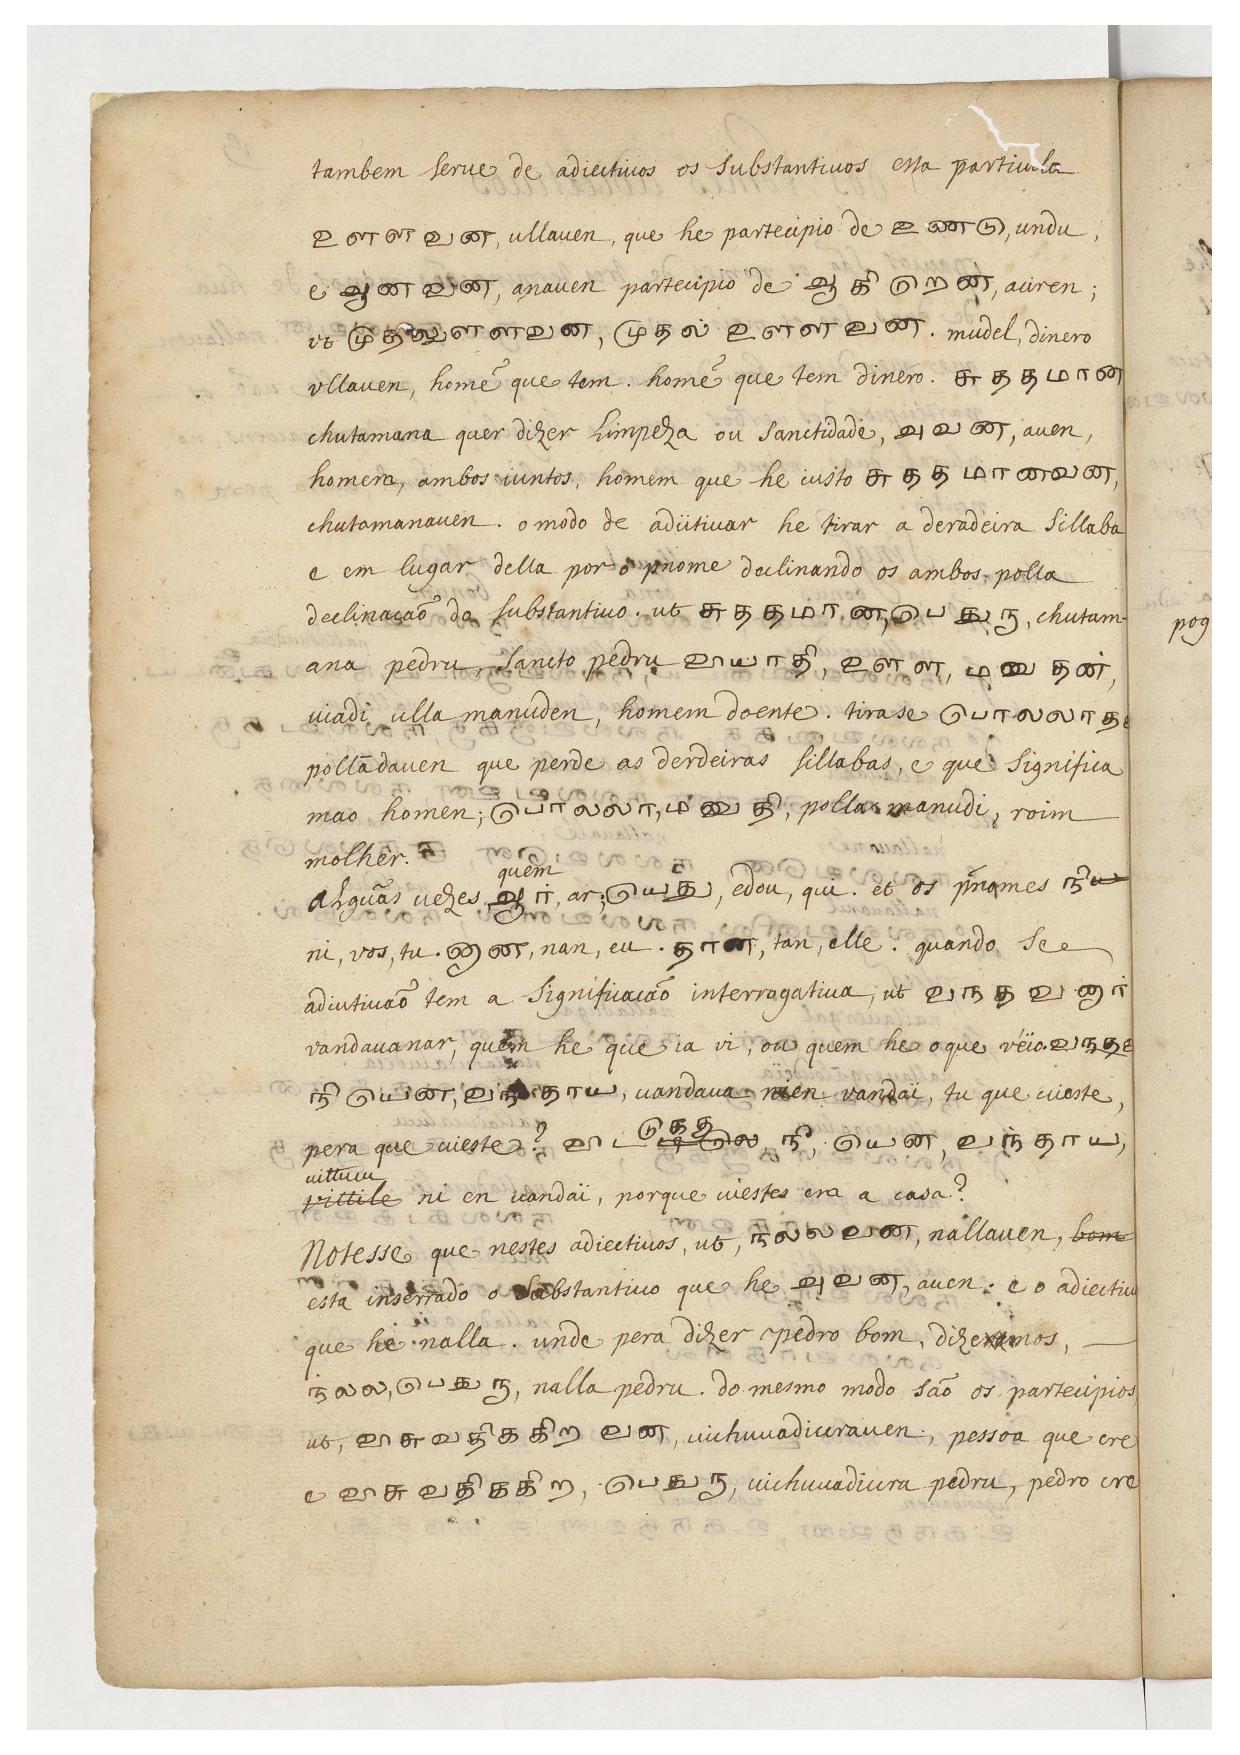 tambem serue de adiectiuos os substantiuos esta particula
உளளவன, ullauen, que he partecipio de உணடு, undu,
e ஆனவன, anauen partecipio de ஆகிறென, aciren;
ut முதலுளளவன, முதல் உளளவன. mudel, dinero
vllauen, homẽ que tem. homẽ que tem dinero. சுததமான
chutamana quer dizer limpeza ou sanctidade, அவன, auen,
homem, ambos iuntos, homem que he iusto சுததமானவன,
chutamanauen. o modo de adiitiuar he tirar a deradeira sillaba
e em lugar della por o pnome declinando os ambos polla
declinação do substantiuo. ut சுததமான, பெதுரு, chutam-
ana pedru, sancto pedru வியாதி, உளள, மனுதன்,
uiadi ulla manuden, homem doente. tirase பொலலாத
polladauen que perde as derdeiras sillabas, e que significa
mao homen; பொலலா, மனுதி, polla manudi, roim
molher.
quem
Alguãs uezes ஆர், ar; யெது, edou, qui. et os pñomes நிய
ni, vos, tu. னான, nan, eu. தான, tan, elle. quando se
adiutiuaõ tem a significacaõ interrogatiua, ut வநதவனார்
vandauanar, quem he que ia vi, ou quem he o que véio. வநத
நி யென, வநதாய, uandaua nien vandaï, tu que uieste,
டுதத
pera que uieste? வி டடில, நீ, யென, வந்தாய,
uittuu
vittile ni en uandaï, porque uiestes era a casa?
Notesse que nestes adiectiuos, ut, நலலவன, nallauen, bom
esta inserrado o substantiuo que he அவன, auen. e o adiectiu
que he nalla. unde pera dizer pedro bom, dizeramos,
நலல, பெதுரு, nalla pedru. do mesmo modo saõ os partecipios
ut, விசுவதிககிறவன, uichuuadicirauen, pessoa que cre
e விசுவதிககிற, பெதுரு, uichuuadicira pedru, pedro cre
pog